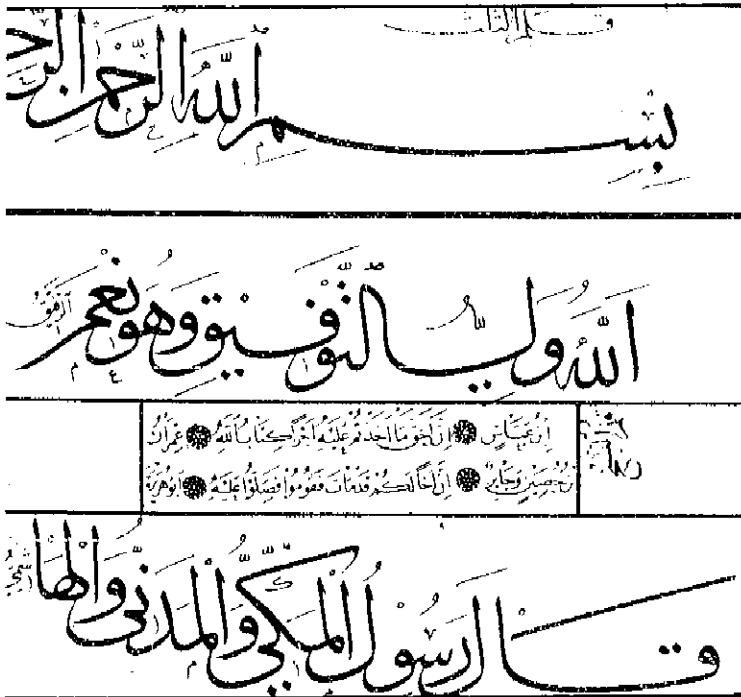 قلم الثلث
بِسْمِ اللهِ الرَّحْمٰنِ
اَللهُ وَلِيُّ التَّوْفِيقِ وَهُوَ نِعْمَ الرَّفِيقُ
ابن عباس ان احق ما اخذتم عليه اجرا كتاب الله عمران
بن حصين وجابر ان اخا لكم قد مات فقوموا فصلوا عليه ابو هريرة
قَالَ رَسُولُ الْمَكِّيِّ وَالْمَدَنِيِّ وَالْهَاشمي